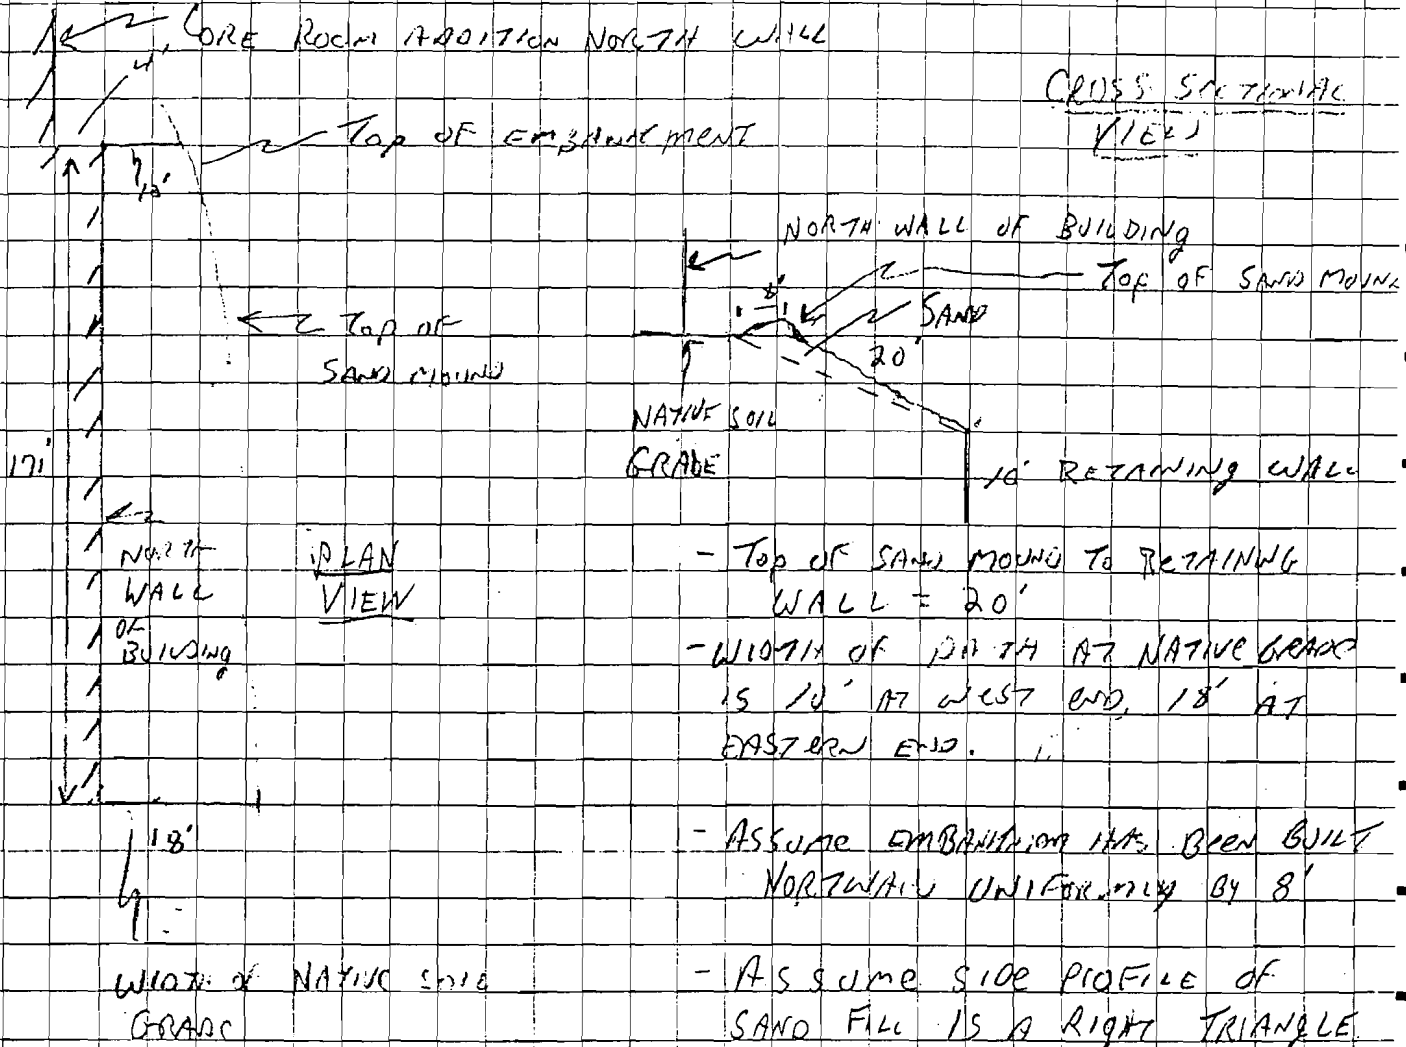 CORE ROOM ADDITION NORTH WALL
4'
CROSS SECTIONAL
VIEW
TOP OF EMBANKMENT
NORTH WALL OF BUILDING
8'
TOP OF SAND MOUN
SAND
TOP OF
SAND MOUND
20'
NATIVE SOIL
GRADE
171'
RETAINING WALL
NORTH
WALL
OF
BUILDING
PLAN
VIEW
- TOP OF SAND MOUND TO RETAINING
WALL = 20'
- WIDTH OF PATH AT NATIVE GRADE
IS AT WEST END, 18' AT
EASTERN END.
18'
- ASSUME HAS BEEN BUILT
UNIFORMLY BY 8'
WIDTH OF NATIVE SOIL
GRADE
- ASSUME SIDE PROFILE OF
SAND FILL IS A RIGHT TRIANGLE